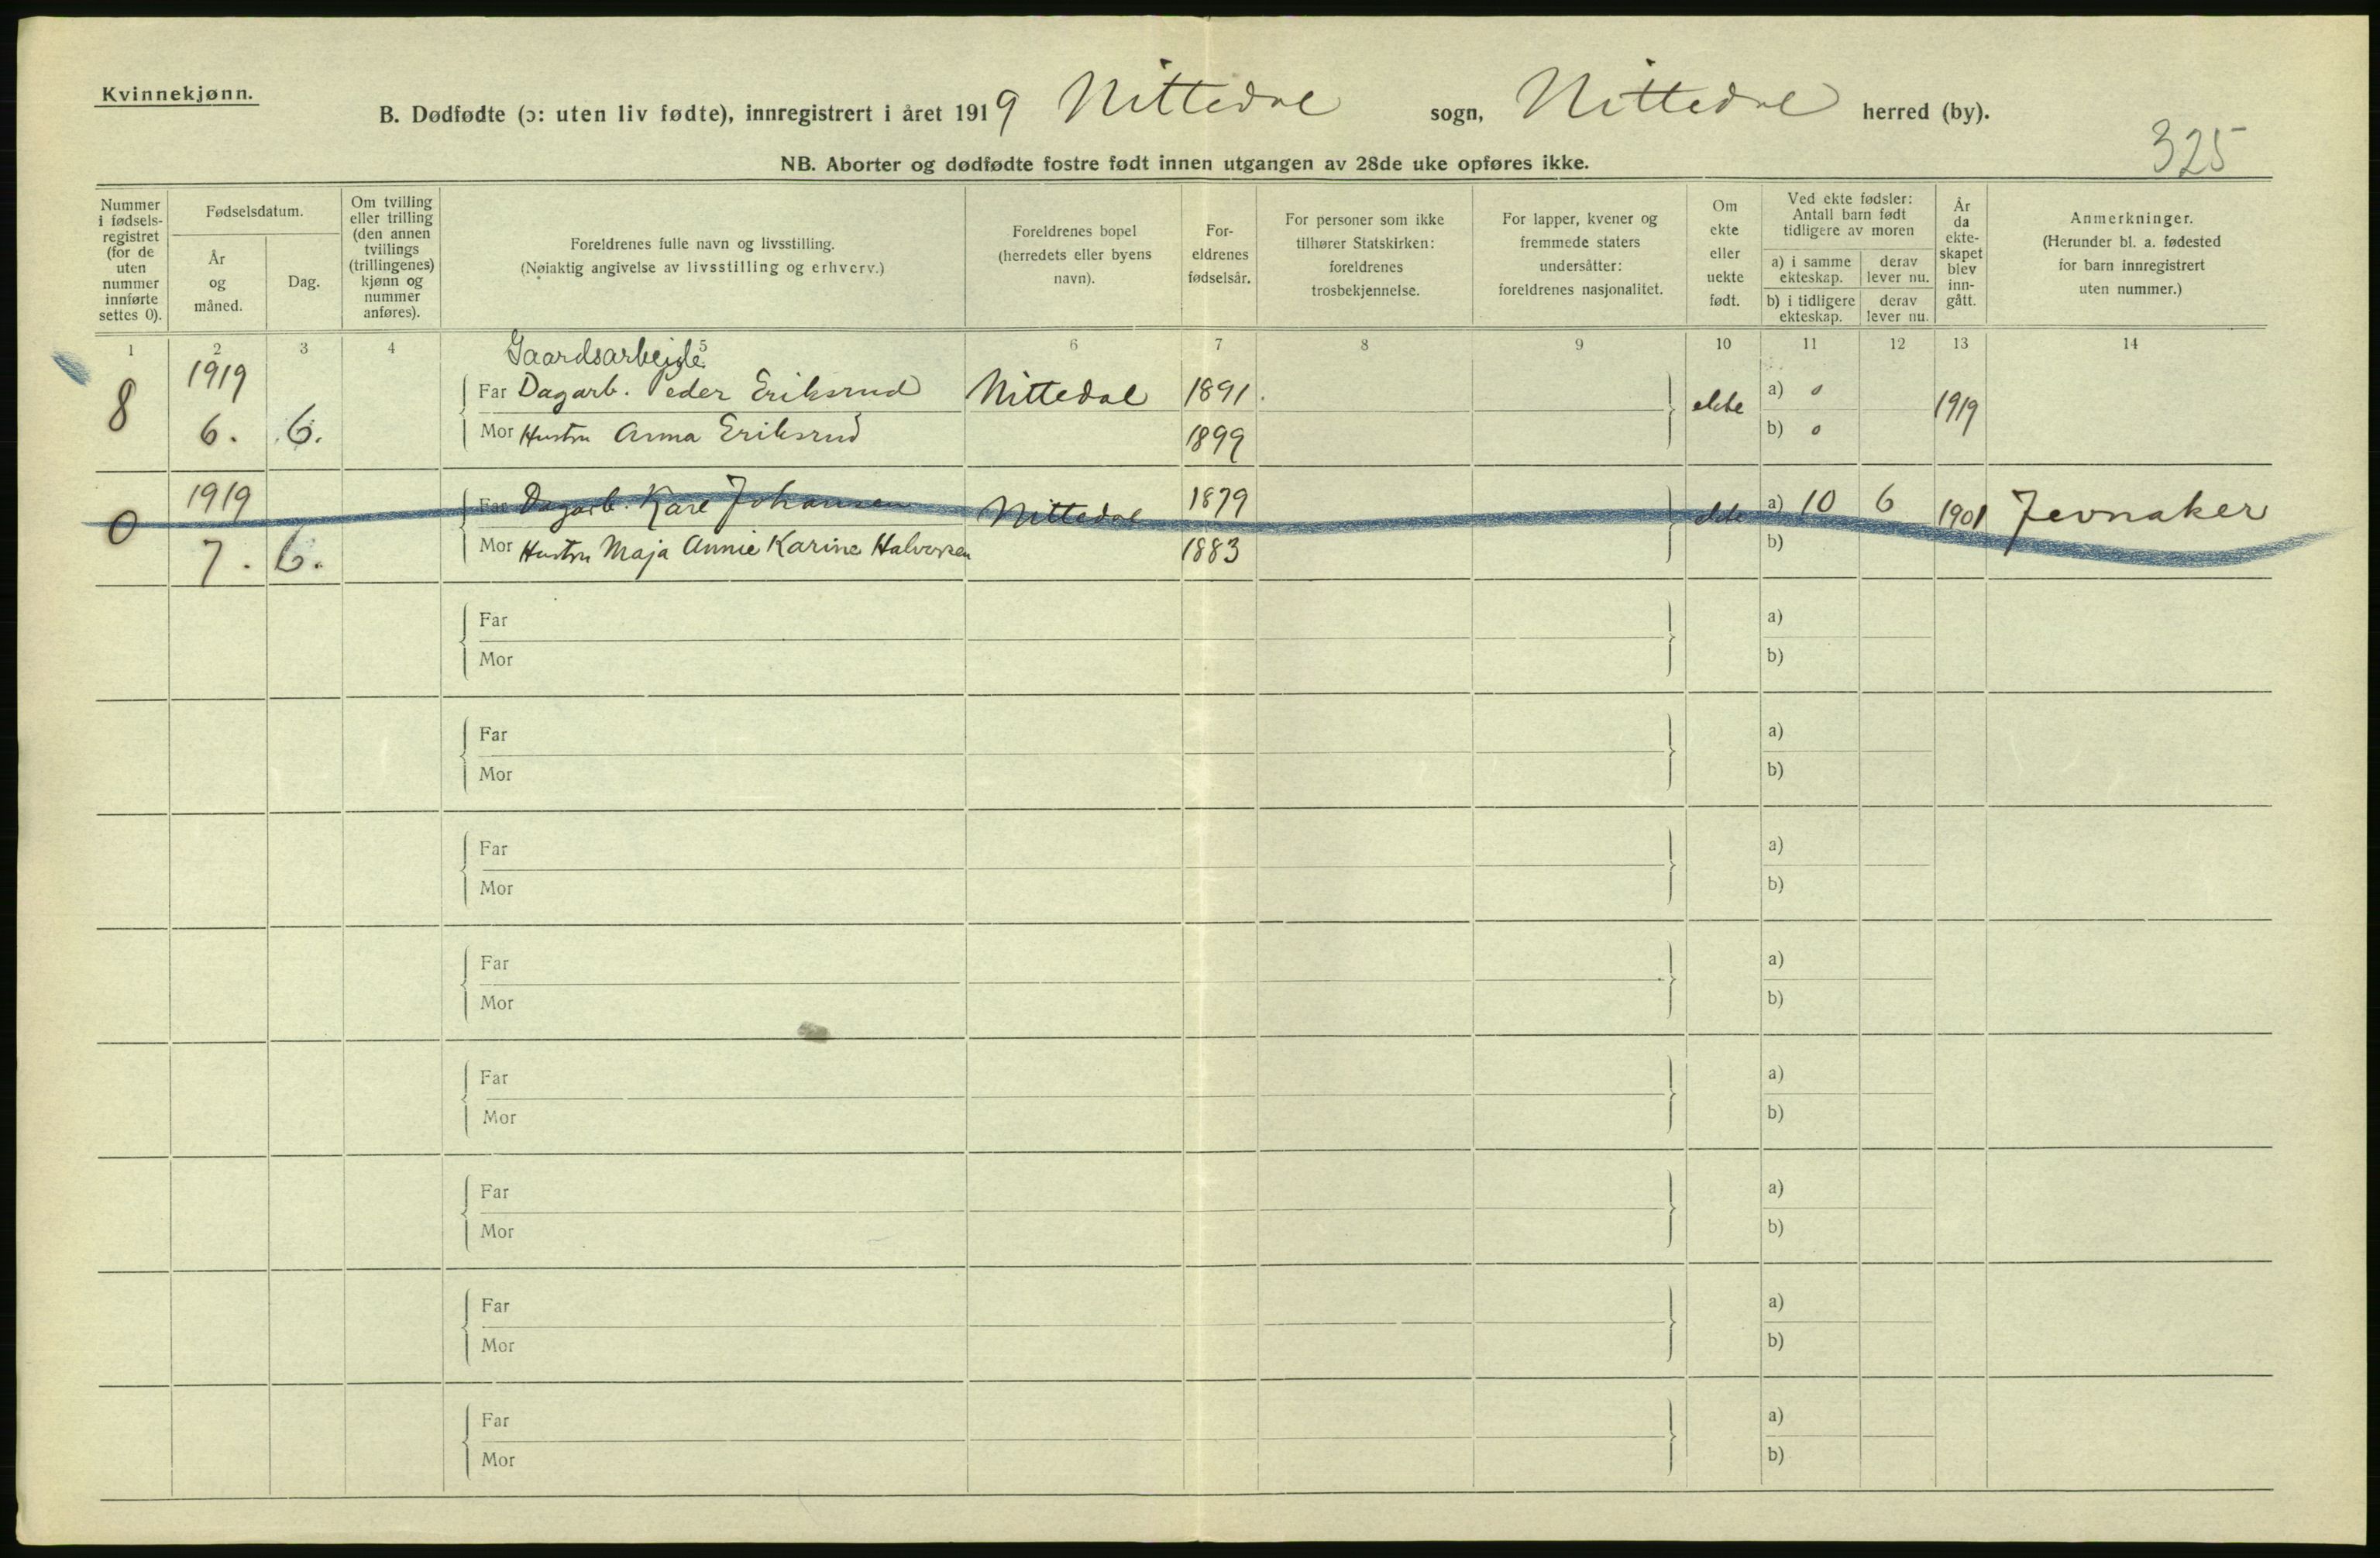 Kvinnekjønn.
B. Dødfødte (ɔ: uten liv fødte), innregistrert i året 1919 Nittedal sogn, Nittedal herred (by).
325
NB. Aborter og dødfødte fostre født innen utgangen av 28de uke opføres ikke.
Nummer i fødsels- registret (for de uten nummer innførte settes 0).
Fødselsdatum.
År og måned.
Dag.
Om tvilling eller trilling (den annen tvillings (trillingenes) kjønn og nummer anføres).
Foreldrenes fulle navn og livsstilling.
(Nøiaktig angivelse av livsstilling og erhverv.)
Foreldrenes bopel (herredets eller byens navn).
For- eldrenes fødselsår.
For personer som ikke tilhører Statskirken: foreldrenes trosbekjennelse.
For lapper, kvener og fremmede staters undersåtter: foreldrenes nasjonalitet.
Om ekte eller uekte født.
Ved ekte fødsler: Antall barn født tidligere av moren
a) i samme ekteskap.
derav lever nu.
b) i tidligere ekteskap.
derav lever nu.
År da ekte- skapet blev inn- gått.
Anmerkninger.
(Herunder bl. a. fødested for barn innregistrert uten nummer.)
1 2 3 4 5 6 7 8 9 10 11 12 13 14
Gaardsarbeide
8 1919 6. 6.
Far Dagarb. Peder Eriksrud Nittedal 1891. ekte a) 0 1919
Mor Hustru Anna Eriksrud 1899 b) 0
0 1919 7. 6.
Far Dagarb. Karl Johansen Nittedal 1879 ekte a) 10 6 1901 Jevnaker
Mor Hustru Maja Annie Karine Halvorsen 1883 b)
Far a)
Mor b)
Far a)
Mor b)
Far a)
Mor b)
Far a)
Mor b)
Far a)
Mor b)
Far a)
Mor b)
Far a)
Mor b)
Far a)
Mor b)